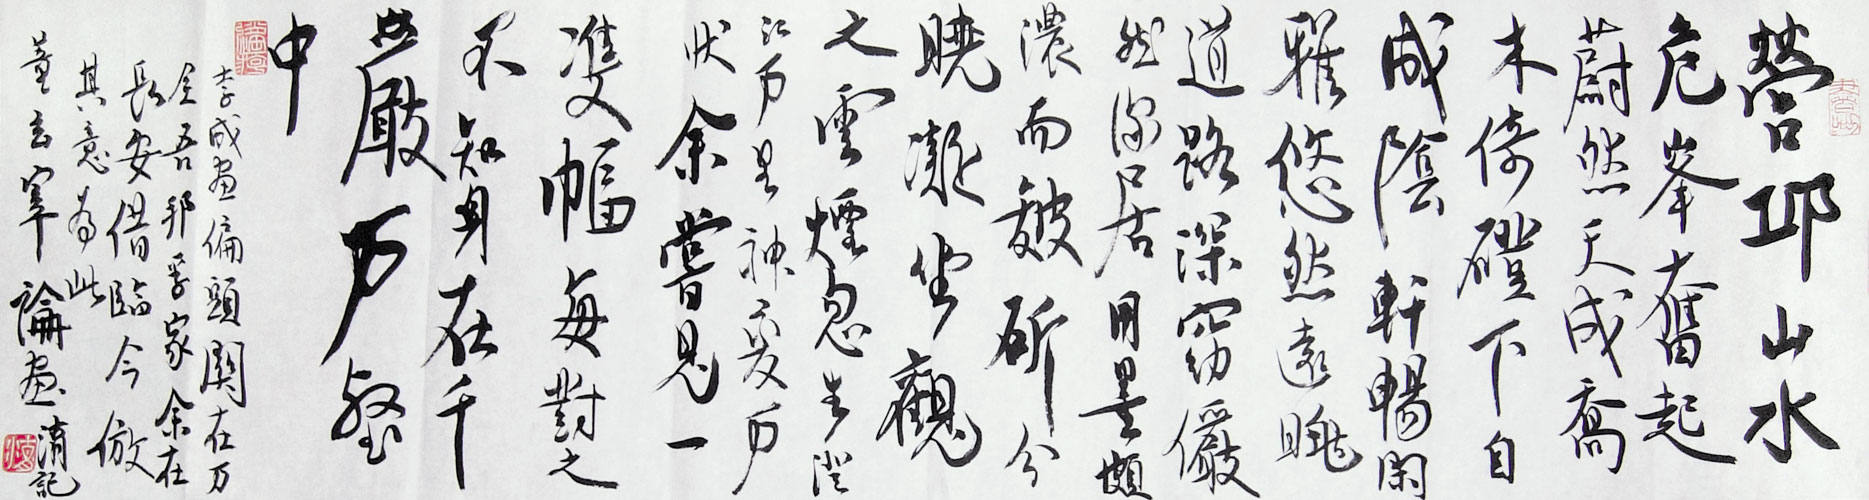 營邱山水
危峯奮起
蔚然天成喬
木倚磴下自
成陰軒暢閑
雅悠然遠眺
道路深窈儼
然深居用墨頗
濃而皴斫分
曉凝坐觀
之雲煙忽生澄
江万里神變万
狀余嘗見一
雙幅每對之
不知身在千
巖万壑
中
李成画偏頭關在万
金吾邦孚家余在
長安借臨今倣
其意為此
董玄宰論画 記